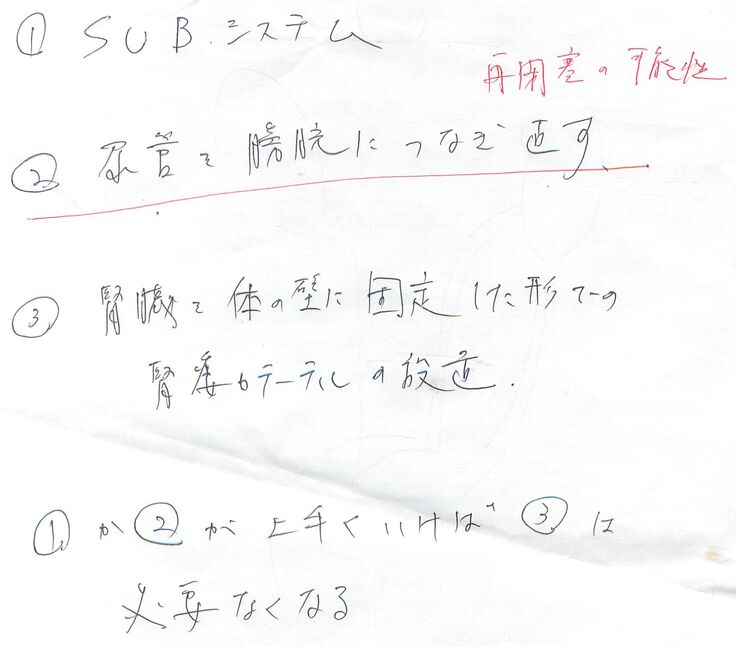 ① SUB.システム
再閉塞の可能性
② 尿管を膀胱につなぎ直す
③ 腎臓を体の壁に固定した形での
腎瘻カテーテルの設置.
①か②が上手くいけば③は
必要なくなる